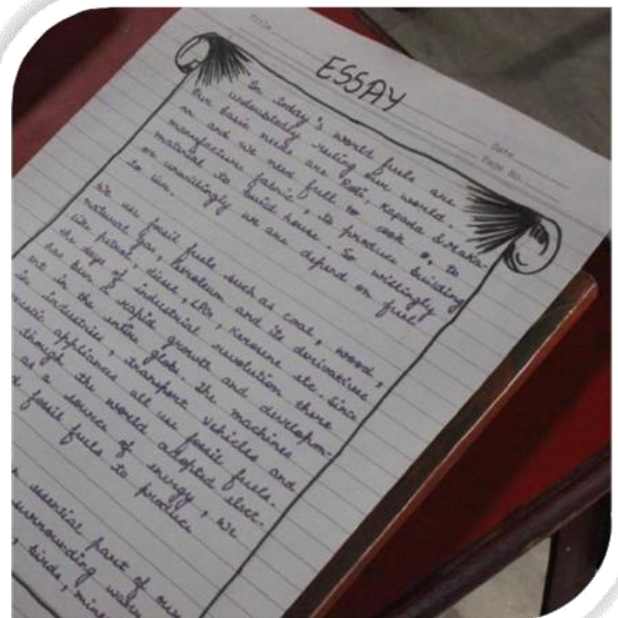 Title
ESSAY
Date
Page No.
In today's world fuels are
undoubtedly ruling our world.
Our basic needs are Roti, Kapada & Maka-
an and we need fuel to cook, to
manufacture fabric, to produce building
material to build house. So willingly
or unwillingly we are depend on fuel
to live.
We use fossil fuels such as coal, wood,
natural gas, petroleum and its derivatives
like petrol, diesel, LPG, kerosene etc. Since
the days of industrial revolution there
has been a rapid growth and developm-
ent in the entire globe. The machines
in industries, transport vehicles and
appliances all use fossil fuels.
though the world adopted elect-
as a source of energy, we
fossil fuels to produce
essential part of our
surrounding
, birds,